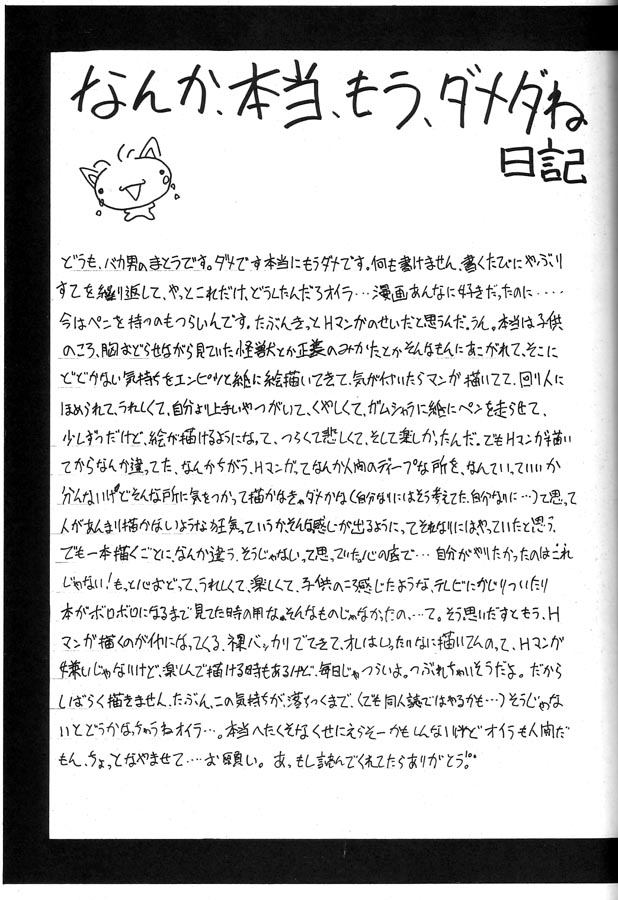 なんか、本当、もう、ダメダね
日記
どうも、バカ男のまとうです。ダメです本当にもうダメです。何も書けません、書くたびにやぶり
すてを繰り返して、やっとこれだけ、どうしたんだろオイラ…漫画あんなに好きだったのに‥‥
今はペンを持つのもつらいんです。たぶんきっとHマンガのせいだと思うんだ。うん。本当は子供
のころ、胸おどらせながら見ていた怪獣とか正義のみかたとかそんなもんにあこがれて、そこに
とどかない気持ちをエンピツと紙に絵描いてきて、気が付いたらマンガ描いてて、回り人に
ほめられて、うれしくて、自分より上手いやつがいて、くやしくて、ガムシャラに紙にペンを走らせて、
少しずつだけど、絵が描けるようになって、つらくて悲しくて、そして楽しかったんだ。でもHマンガ描い
てからなんか違ってた、なんかちがう、Hマンガってなんか人間のディープな所を、なんていっていいか
分んないけどそんな所に気をつかって描かなきゃダメかな(自分なりにはそう考えてた、自分なりに…)て思って
人があんまり描かないような狂気っていうか、そんな感じが出るように、ってそれなりにはやっていたと思う、
でも一本描くごとに、なんか違う、そうじゃないって思っていた。心の底で…自分がやりたかったのはこれ
じゃない!もっと心おどって、うれしくて、楽しくて、子供のころ感じたような、テレビにかじりついたり
本がボロボロになるまで見てた時の用な。そんなものじゃなかったの、…て。そう思いだすともう、H
マンガ描くのが嫌になってくる、裸バッカリでてきて、オレはいったいなに描いてんのって、Hマンガ
嫌いじゃないけど、楽しんで描ける時もあるけど、毎日じゃつらいよ。つぶれちゃいそうだよ。だから
しばらく描きません、たぶん、この気持ちが、落ちつくまで、(でも同人誌ではやるかも…)そうじゃな
いとどうかなっちゃうねオイラ…。本当へたくそなくせにえらそーかもしんないけどオイラも人間だ
もん、ちょっとなやませて…お願い。あっ、もし読んでくれてたらありがとう!。